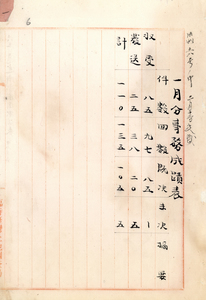 一月分事務成蹟表
件数 回数 既決 未決 摘要
收受 八五 九七 八五 一
發送 二五 三八 二〇 五
計 一一〇 一三五 一〇五 五